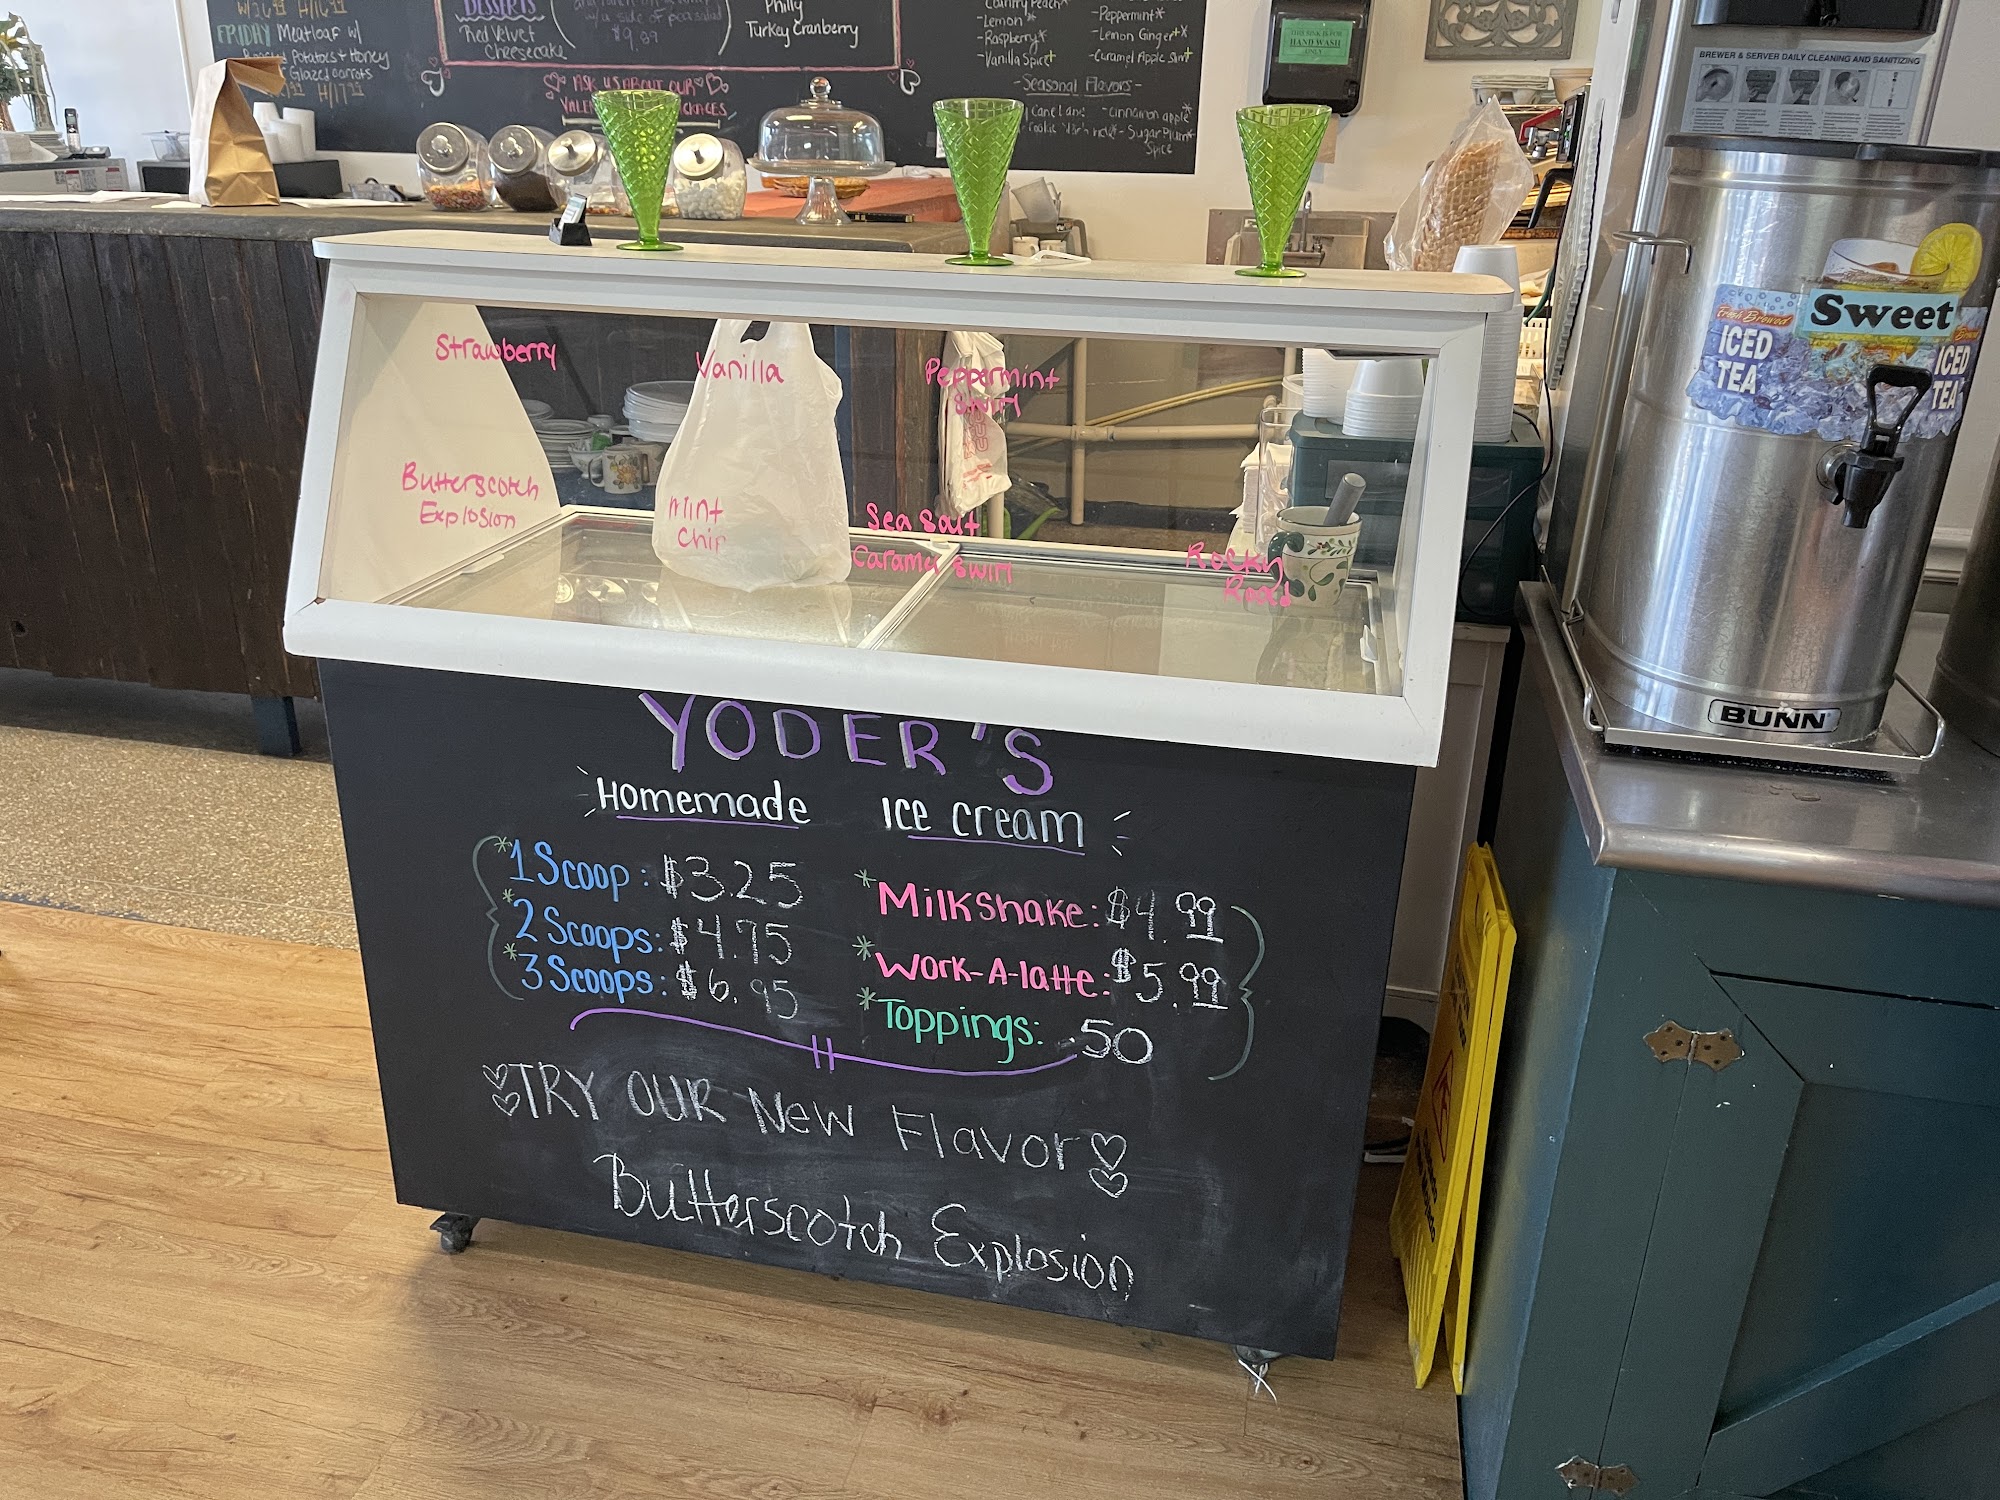 W/26 H/16
FRIDAY Meatloaf w/
Potatoes + Honey
Glazed carrots
H/17
DESSERTS
Red Velvet
Cheesecake
w/a side of pea salad
$9.99
Philly
Turkey Cranberry
ASK US ABOUT OUR
Country Peach*
-Lemon*
-Raspberry*
-Vanilla Spice+
-Peppermint*
-Lemon Ginger+x
-Caramel Apple
-Seasonal Flavors-
-cinnamon apple*
-Sugar Plum*
Spice
HAND WASH
ONLY
BREWER & SERVER DAILY CLEANING AND SANITIZING
Fresh Brewed
ICED
TEA
Sweet
ICED
TEA
BUNN
Strawberry
Vanilla
Peppermint
Swirl
Butterscotch
Explosion
Mint
Chip
Sea Salt
Caramel Swirl
Rocky
Road
YODER'S
Homemade Ice cream
*1 Scoop: $3.25
*2 Scoops: $4.75
*3 Scoops: $6.95
*Milkshake: $4.99
*Work-A-latte: $5.99
*Toppings: .50
TRY OUR New Flavor
Butterscotch Explosion